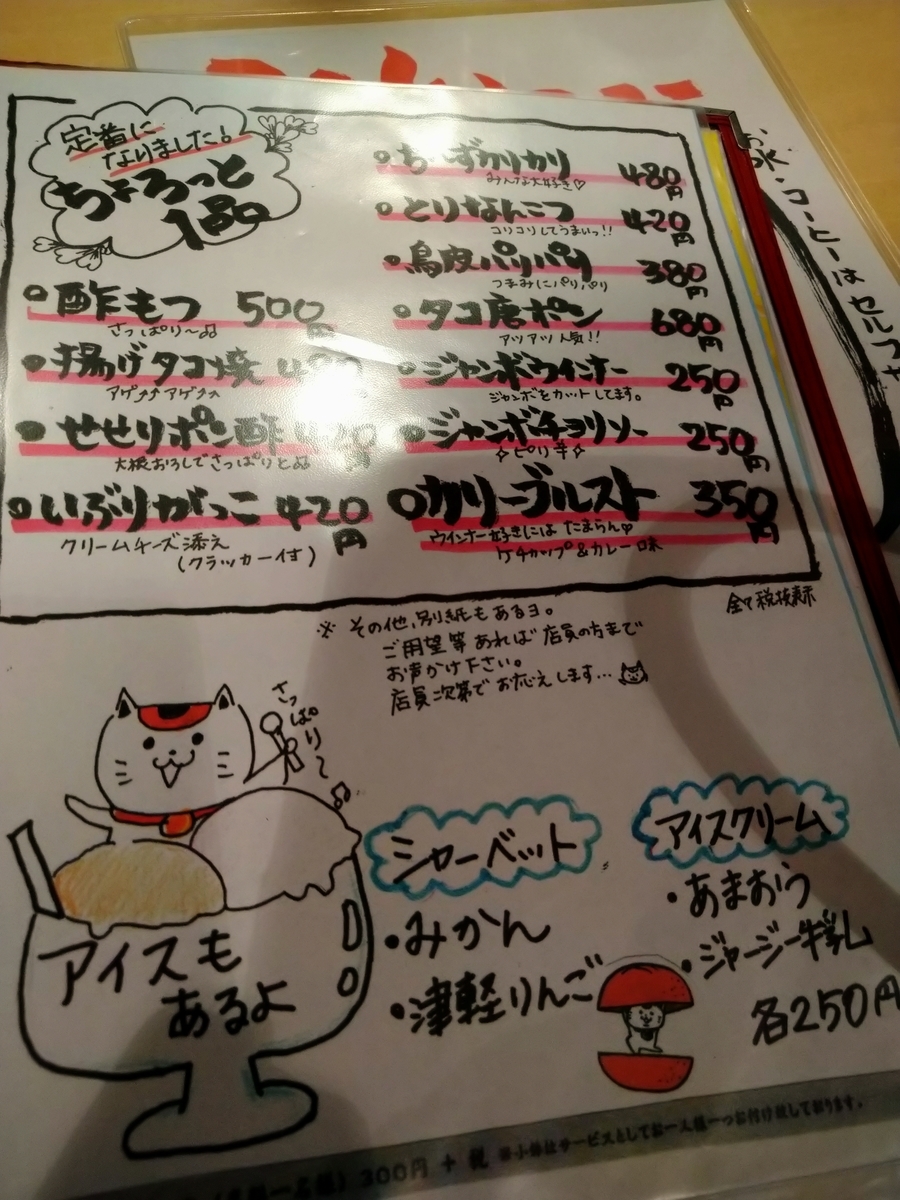 定番に
なりました!
ちょろっと
1品
酢もつ 500円
さっぱり〜♫
揚げタコ焼
アゲ↗↗アゲ↗↗
せせりポン酢 420円
大根おろしでさっぱりと♫
いぶりがっこ 420円
クリームチーズ添え
(クラッカー付)
ちーずカリカリ 480円
みんな大好き♡
とりなんこつ 420円
コリコリしてうまいっ!!
鳥皮パリパリ 380円
つまみにパリパリ
タコ唐ポン 680円
アツアツ人気!!
ジャンボウインナー 250円
ジャンボをカットしてます。
ジャンボチョリソー 250円
☆ピリ辛☆
カリーブルスト 350円
ウインナー好きにはたまらん♡
ケチャップ&カレー味
全て税抜表示
※ その他、別紙もあるヨ。
ご用望等あれば店員の方まで
お声かけ下さい。
店員次第でお応えします…
さっぱり〜♫
アイスも
あるよ
シャーベット
・みかん
・津軽りんご
アイスクリーム
・あまおう
・ジャージー牛乳
各250円
300円 + 税 ※小鉢はサービスとしてお一人様一つお付け致しております。
お水・コーヒーはセルフサ